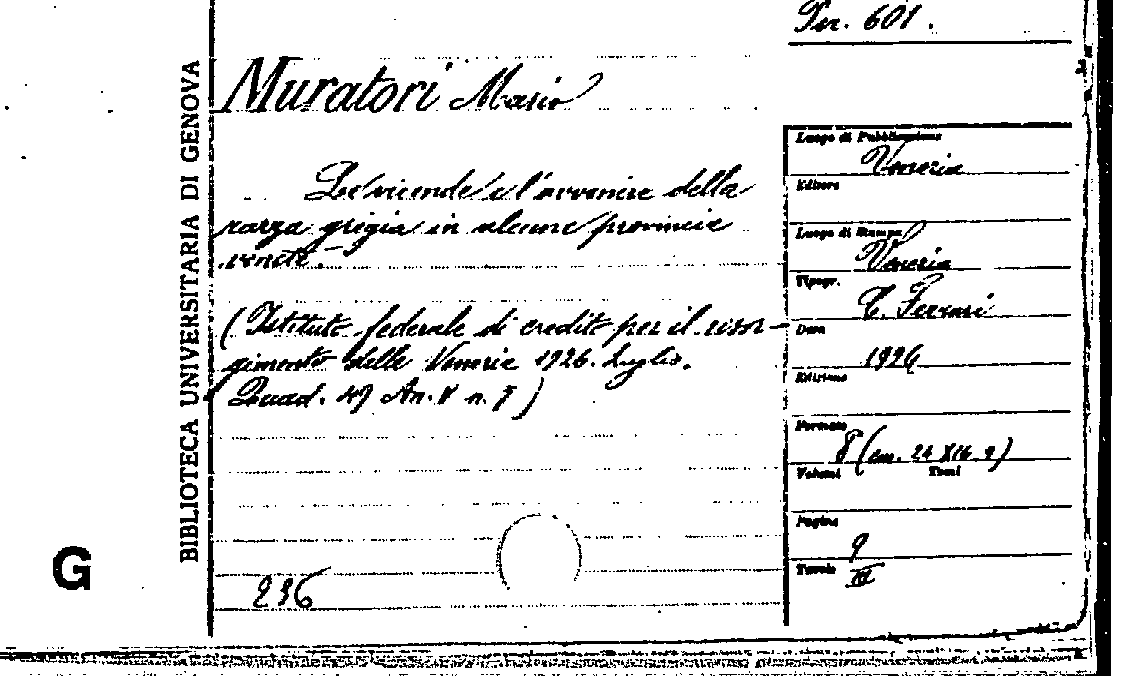 Per. 601.
BIBLIOTECA UNIVERSITARIA DI GENOVA
Muratori Mario
Le vicende e l'avvenire della
razza grigia in alcune provincie
venete.
(Istituto federale di credito per il risor-
gimento delle Venezie 1926. Luglio.
Quad. 49 An. V n. 7)
236
G
Luogo di Pubblicazione
Venezia
Editore
Luogo di Stampa
Venezia
Tipogr.
C. Ferrari
Data
1926
Edizione
Formato
8 (cm. 24 X 16.9)
Volumi Tomi
Pagine
9
Tavole III